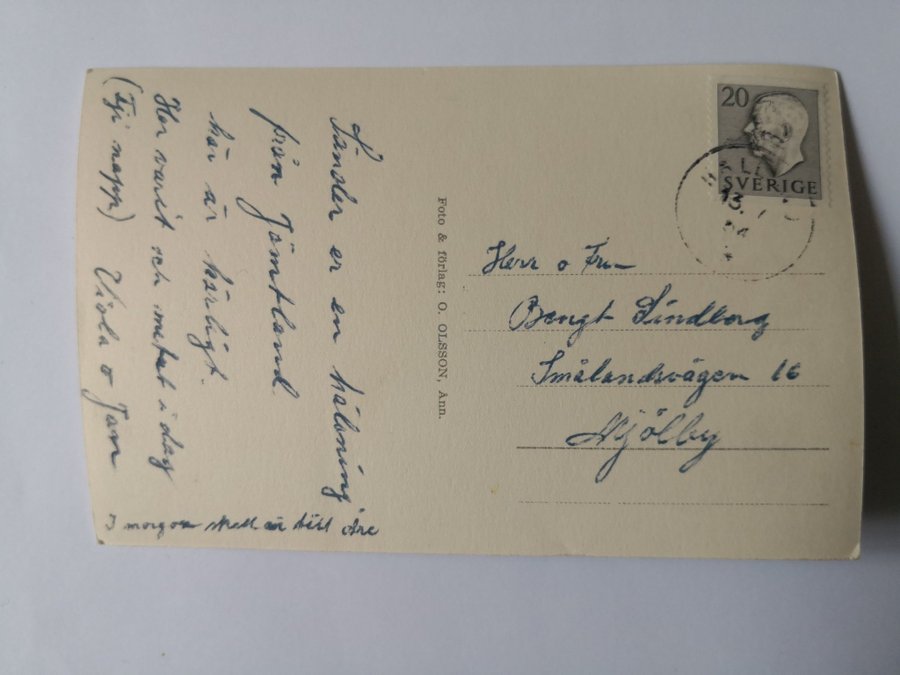 Sänder er en hälsning
från Jämtland.
här är härligt.
Har varit och metat i dag
(Ej napp) Viola o Jan
I morgon skall vi till Åre
Foto & förlag: O. OLSSON, Ann.
20
SVERIGE
Herr o Fru
Bengt Lindberg
Smålandsvägen 16
Mjölby